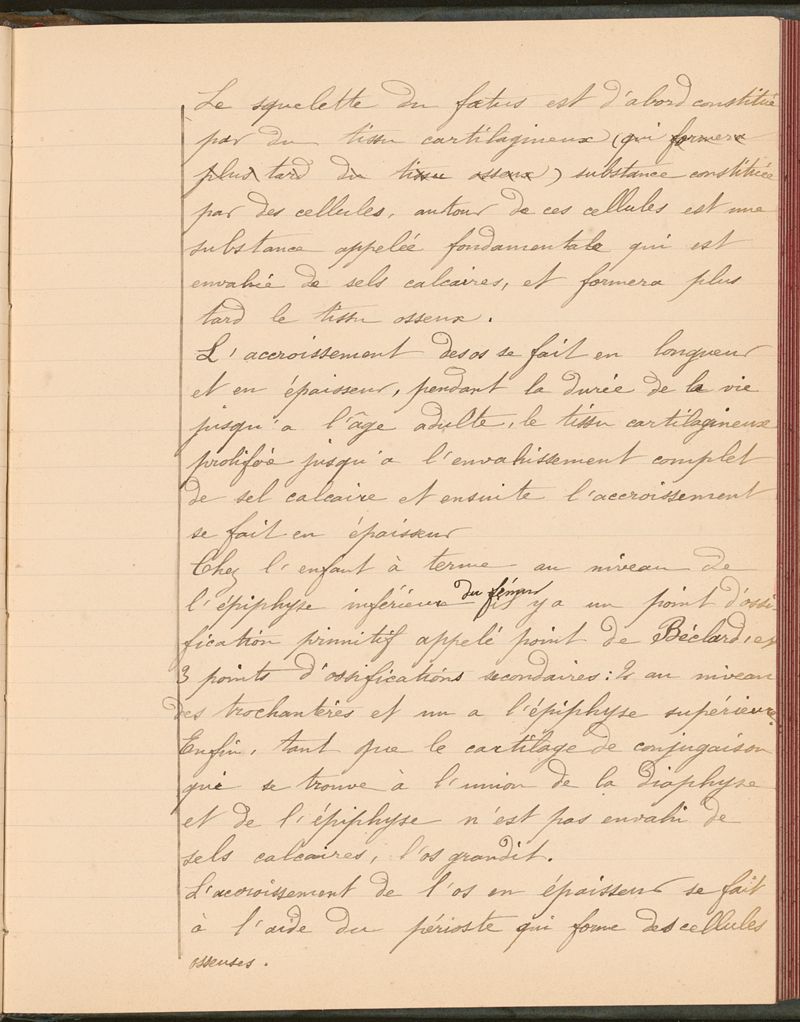 Le squelette du fœtus est d'abord constitué
par du tissu cartilagineux (qui formera
plus tard du tissu osseux) substance constituée
par des cellules, autour de ces cellules est une
substance appelée fondamentale qui est
envahie de sels calcaires, et formera plus
tard le tissu osseux.
L'accroissement des os se fait en longueur
et en épaisseur, pendant la durée de la vie
jusqu'a l'âge adulte, le tissu cartilagineux
prolifére jusqu'a l'envahissement complet
de sel calcaire et ensuite l'accroissement
se fait en épaisseur
Chez l'enfant à terme au niveau de
l'épiphyse inférieure du fémur il y a un point d'ossi-
fication primitif appelé point de Béclard, et
3 points d'ossifications secondaires: 2 au niveau
des trochantères et un a l'épiphyse supérieure.
Enfin, tant que le cartilage de conjugaison
qui se trouve à l'union de la diaphyse
et de l'épiphyse n'est pas envahi de
sels calcaires, l'os grandit.
L'accroissement de l'os en épaisseur se fait
à l'aide du périoste qui forme des cellules
osseuses.